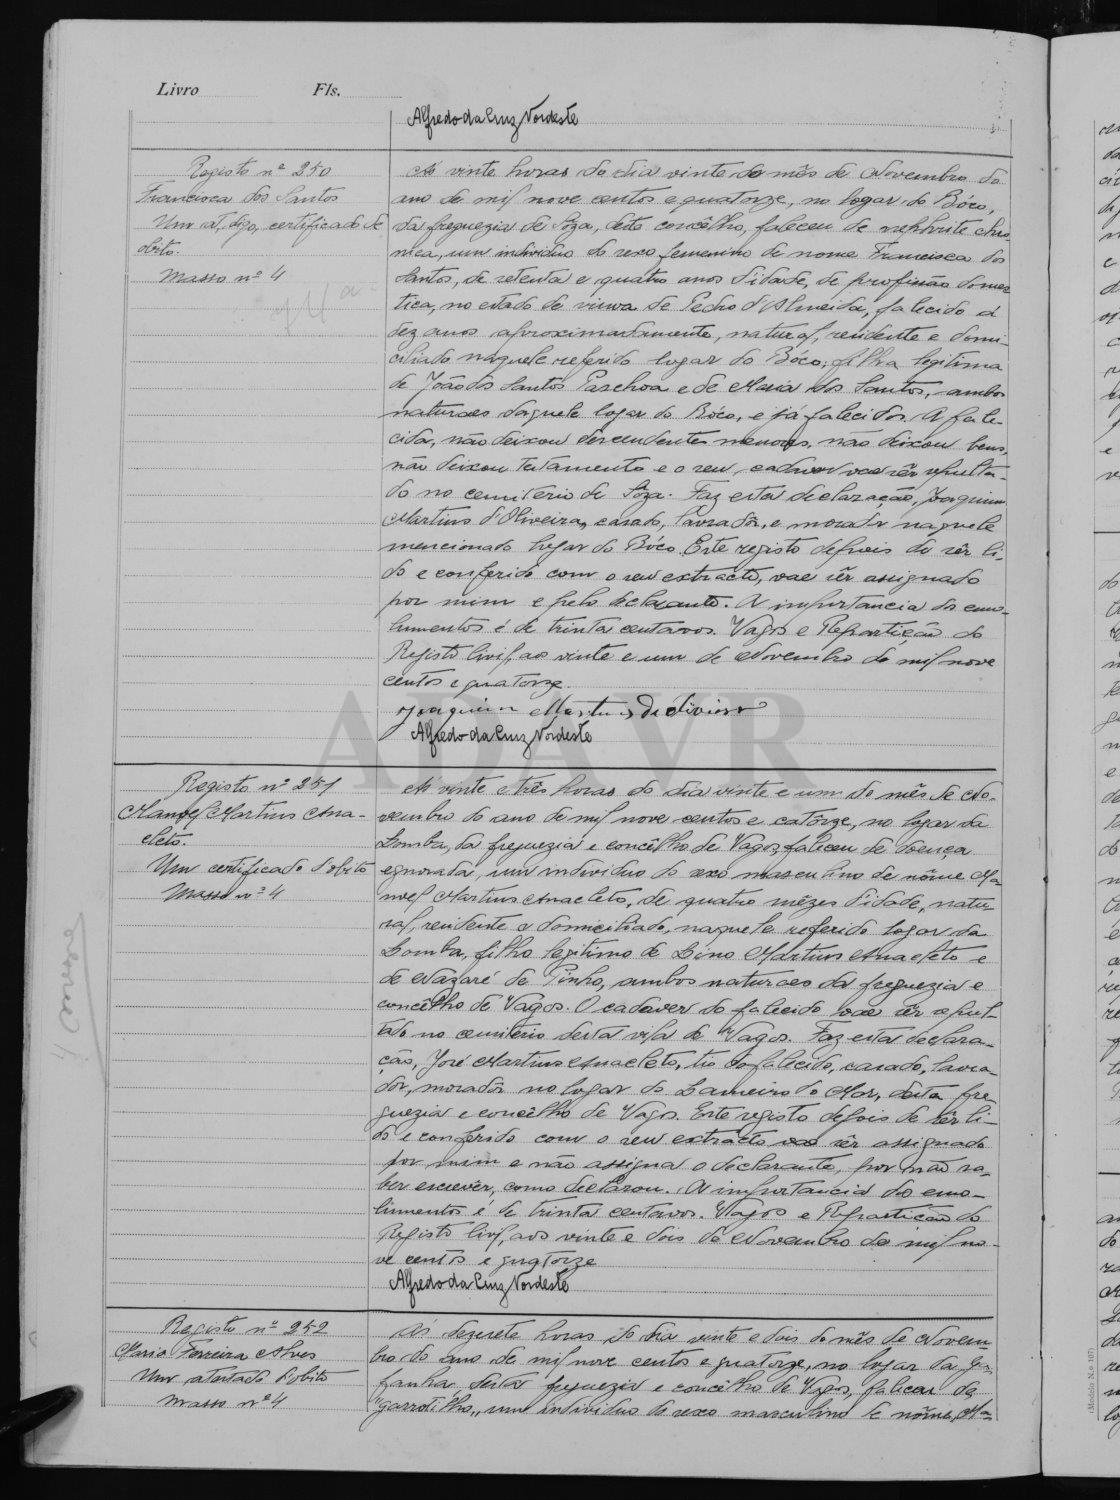 Livro Fls.
Alfredo da Cruz Nordeste
Registo nº 250
Francisca dos Santos
Um certificado de
obito.
Masso nº 4
Ás vinte horas do dia vinte do mês de Novembro do
ano de mil nove centos e quatorze, no logar do Bóco,
da freguezia de Sôza, deste concêlho, faleceu de nephrite chro-
nica, um individuo do sexo femenino de nome Francisca dos
Santos, de setenta e quatro anos d'idade, de profissão domes-
tica, no estado de viuva de Pedro d'Almeida, falecido á
dez anos aproximadamente, natural, residente e domi-
ciliado naquele referido logar do Bóco, filha legitima
de João dos Santos Paschoa e de Maria dos Santos, ambos
naturaes daquele logar do Bóco, e já falecidos. A fale-
cida, não deixou descendentes menores, não deixou bens,
não deixou testamento e o seu cadaver vae sêr sepulta-
do no cemiterio de Sôza. Faz esta declaração, Joaquim
Martins d'Oliveira, casado, lavradôr, e moradôr naquele
mencionado logar do Bóco. Este registo depois de sêr li-
do e conferido com o seu extracto, vae sêr assignado
por mim e pelo declarante. A importancia dos emo-
lumentos é de trinta centavos. Vagos e Repartição do
Registo Civil, aos vinte e um de Novembro de mil nove
centos e quatorze.
Joaquim Martins de Oliveira
Alfredo da Cruz Nordeste
ADAVR
Registo nº 251
Manoel Martins Ana-
cleto.
Um certificado d'obito
Masso nº 4
Ás vinte e três horas do dia vinte e um do mês de No-
vembro do ano de mil nove centos e catôrze, no logar da
Lomba, da freguezia e concêlho de Vagos, faleceu de doença
egnorada, um individuo do sexo masculino de nôme Ma-
noel Martins Anacleto, de quatro mêzes d'idade, natu-
ral, residente e domiciliado, naquele referido logar da
Lomba, filho legitimo de Lino Martins Anacleto e
de Nazaré de Pinho, ambos naturaes da freguezia e
concêlho de Vagos. O cadaver do falecido vae sêr sepul-
tado no cemiterio desta vila de Vagos. Faz esta declara-
ção, José Martins Anacleto, tio do falecido, casado, lavra-
dôr, moradôr no logar do Lameiro do Mar, desta fre-
guezia e concêlho de Vagos. Este registo depois de sêr li-
do e conferido com o seu extracto vae sêr assignado
por mim e não assigna o declarante, por não sa-
ber escrevêr, como declarou. A importancia dos emo-
lumentos é de trinta centavos. Vagos e Repartição do
Registo Civil, aos vinte e dois de Novembro de mil no-
ve centos e quatorze
Alfredo da Cruz Nordeste
Registo nº 252
Maria Ferreira Alves
Um atestado d'obito
Masso nº 4
Ás dezesete horas do dia vinte e dois do mês de Novem-
bro do ano de mil nove centos e quatorze, no logar da Ga-
fanha, desta freguezia e concêlho de Vagos, faleceu de
"garrotilho,, um individuo do sexo masculino de nôme, Ma-
(Modelo N.º 107)